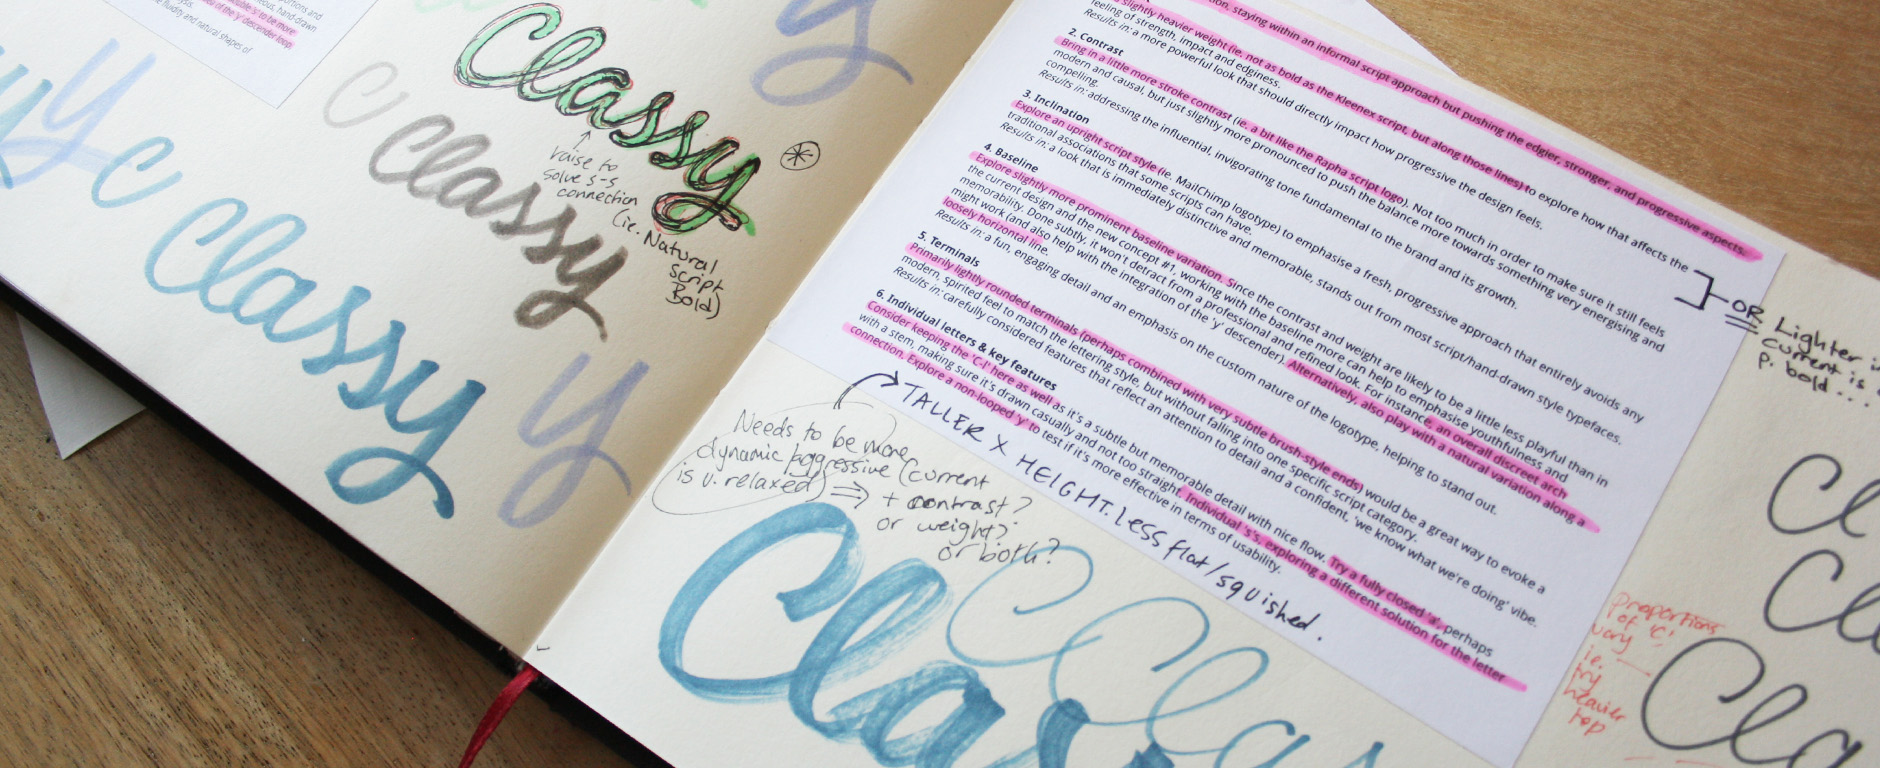 portions and
hand-drawn
to be more
of the 'y' descender loop.
fluidity and natural shapes of
y
y
y
C
Classy
Classy
C Classy
y
raise to
solve s-s
connection
(ie. Natural
Script
Bold)
staying within an informal script approach but pushing the edgier, stronger, and progressive aspects.
slightly heavier weight (ie. not as bold as the Kleenex script, but along those lines) to explore how that affects the
feeling of strength, impact and edginess.
Results in: a more powerful look that should directly impact how progressive the design feels.
2. Contrast
Bring in a little more stroke contrast (ie. a bit like the Rapha script logo). Not too much in order to make sure it still feels
modern and causal, but just slightly more pronounced to push the balance more towards something very energising and
compelling.
Results in: addressing the influential, invigorating tone fundamental to the brand and its growth.
3. Inclination
Explore an upright script style (ie. MailChimp logotype) to emphasise a fresh, progressive approach that entirely avoids any
traditional associations that some scripts can have.
Results in: a look that is immediately distinctive and memorable, stands out from most script/hand-drawn style typefaces.
4. Baseline
Explore slightly more prominent baseline variation. Since the contrast and weight are likely to be a little less playful than in
the current design and the new concept #1, working with the baseline more can help to emphasise youthfulness and
memorability. Done subtly, it won't detract from a professional and refined look. For instance, an overall discreet arch
might work (and also help with the integration of the 'y' descender). Alternatively, also play with a natural variation along a
loosely horizontal line.
Results in: a fun, engaging detail and an emphasis on the custom nature of the logotype, helping to stand out.
5. Terminals
Primarily lightly rounded terminals (perhaps combined with very subtle brush-style ends) would be a great way to evoke a
modern, spirited feel to match the lettering style, but without falling into one specific script category.
Results in: carefully considered features that reflect an attention to detail and a confident, 'we know what we're doing' vibe.
6. Individual letters & key features
Consider keeping the 'C-l' here as well as it's a subtle but memorable detail with nice flow. Try a fully closed 'a', perhaps
with a stem, making sure it's drawn casually and not too straight. Individual 's's, exploring a different solution for the letter
connection. Explore a non-looped 'y' to test if it's more effective in terms of usability.
OR Lighter
current is
p. bold....
TALLER X HEIGHT. Less flat/squished.
Needs to be more
dynamic/aggressive (current
is v. relaxed)
+ contrast?
or weight?
or both?
Cla
C Clas
Cl
Cl
Cla
Proportions
of 'C'
vary
ie.
try
heavier
top